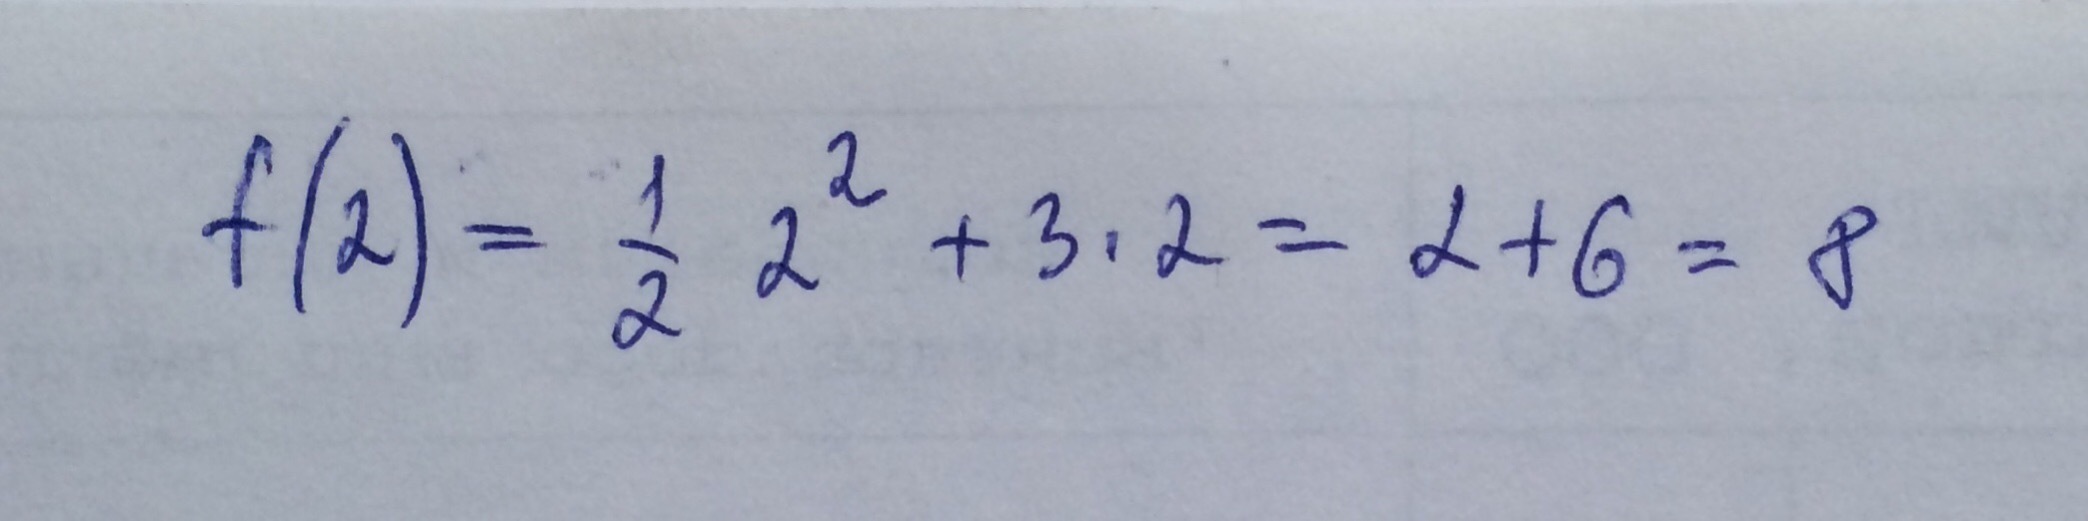 f(2) = 1/2 2² + 3·2 = 2+6 = 8